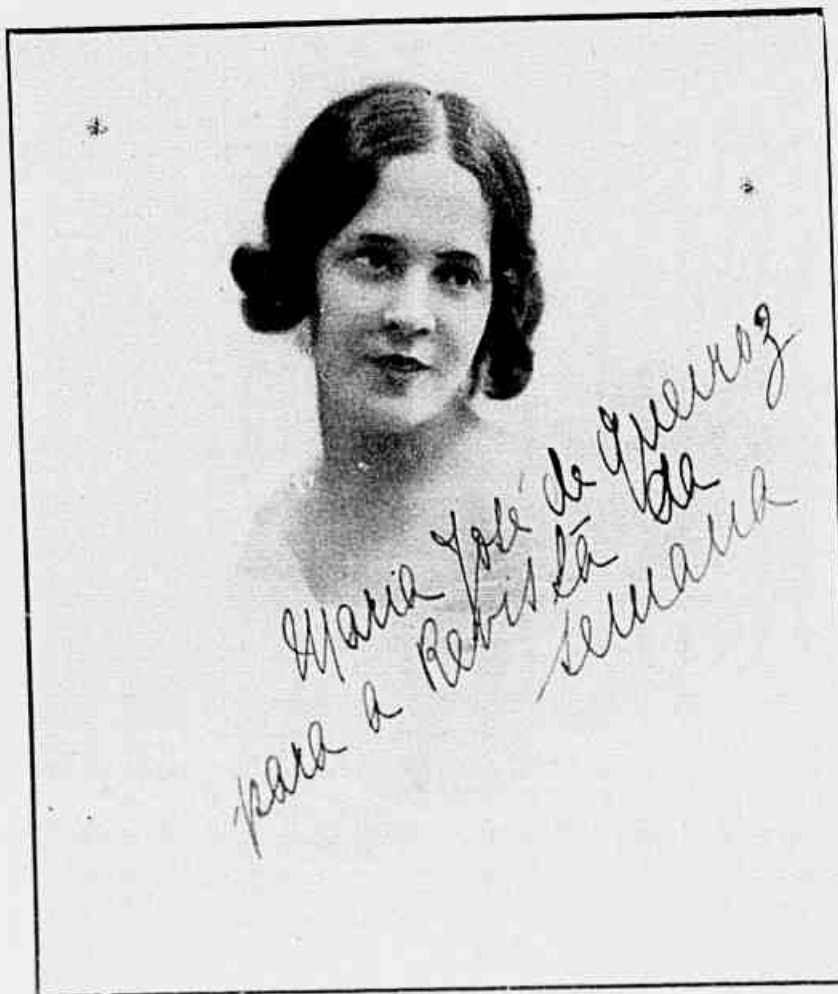 Maria José de Queiroz
para a Revista da
semana